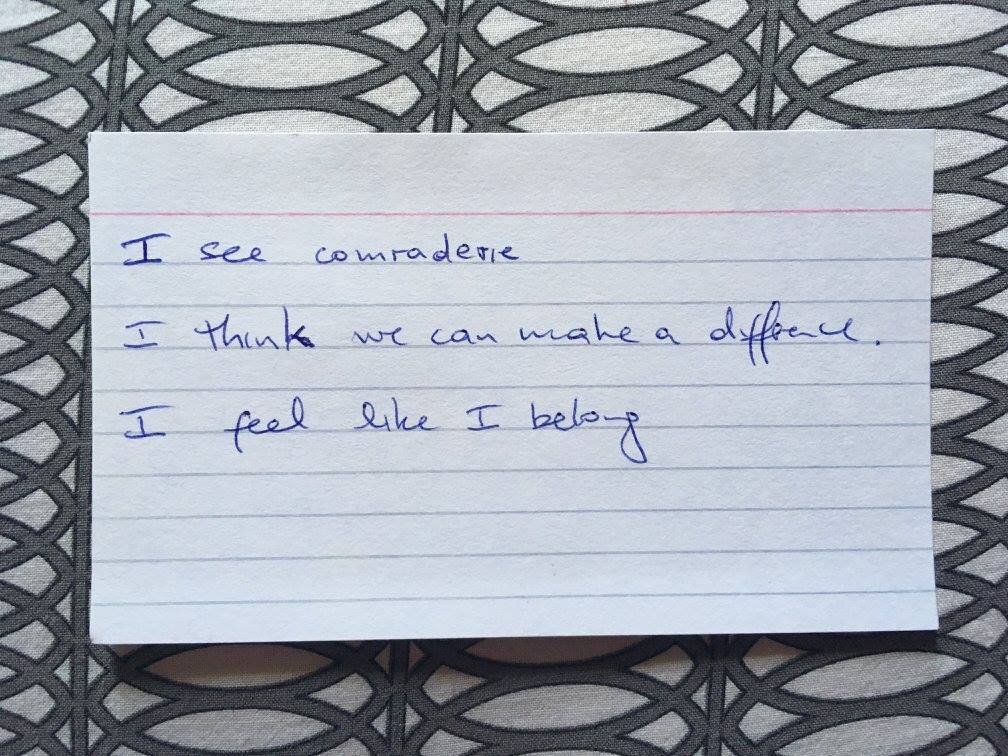 I see comraderie
I think we can make a difference.
I feel like I belong